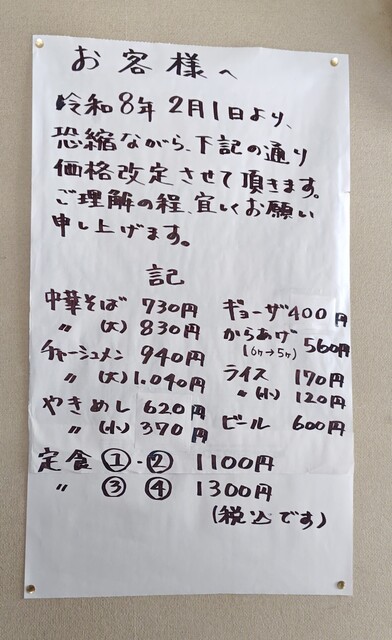 お客様へ
令和8年 2月1日より、
恐縮ながら、下記の通り
価格改定させて頂きます。
ご理解の程、宜しくお願い
申し上げます。
記
中華そば 730円
〃 (大) 830円
チャーシュメン 940円
〃 (大) 1.040円
やきめし 620円
〃 (小) 370円
ギョーザ 400円
からあげ 560円
(6ヶ→5ヶ)
ライス 170円
〃 (小) 120円
ビール 600円
定食 ①-② 1100円
〃 ③ ④ 1300円
(税込です)